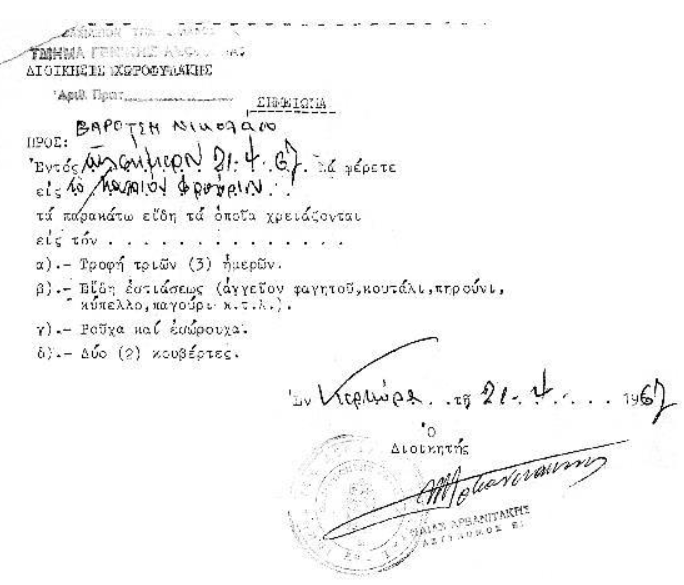 ΤΜΗΜΑ
ΔΙΟΙΚΗΣΙΣ ΧΩΡΟΦΥΛΑΚΗΣ
Ἀριθ. Πρωτ.
ΣΗΜΕΙΩΜΑ
ΒΑΡΟΤΣΗ Νικολαο
ΠΡΟΣ:
Ἐντός σήμερον 21.4.67. νά φέρετε
εἰς τό παλαιόν φρούριον
τά παρακάτω εἴδη τά ὁποῖα χρειάζονται
εἰς τόν . . . . . . . . . . . . . . .
α).- Τροφή τριῶν (3) ἡμερῶν.
β).- Εἴδη ἑστιάσεως (ἀγγεῖον φαγητοῦ,κουτάλι,πηρούνι,
κύπελλο,παγούρι κ.τ.λ.).
γ).- Ροῦχα καί ἐσώρουχα.
δ).- Δύο (2) κουβέρτες.
Ἐν Κερκύρα . .τῇ 21. 4. . . . 1967
Ὁ
Διοικητής
ΑΡΒΑΝΙΤΑΚΗΣ
ΑΣΤΥΝΟΜΟΣ Β'